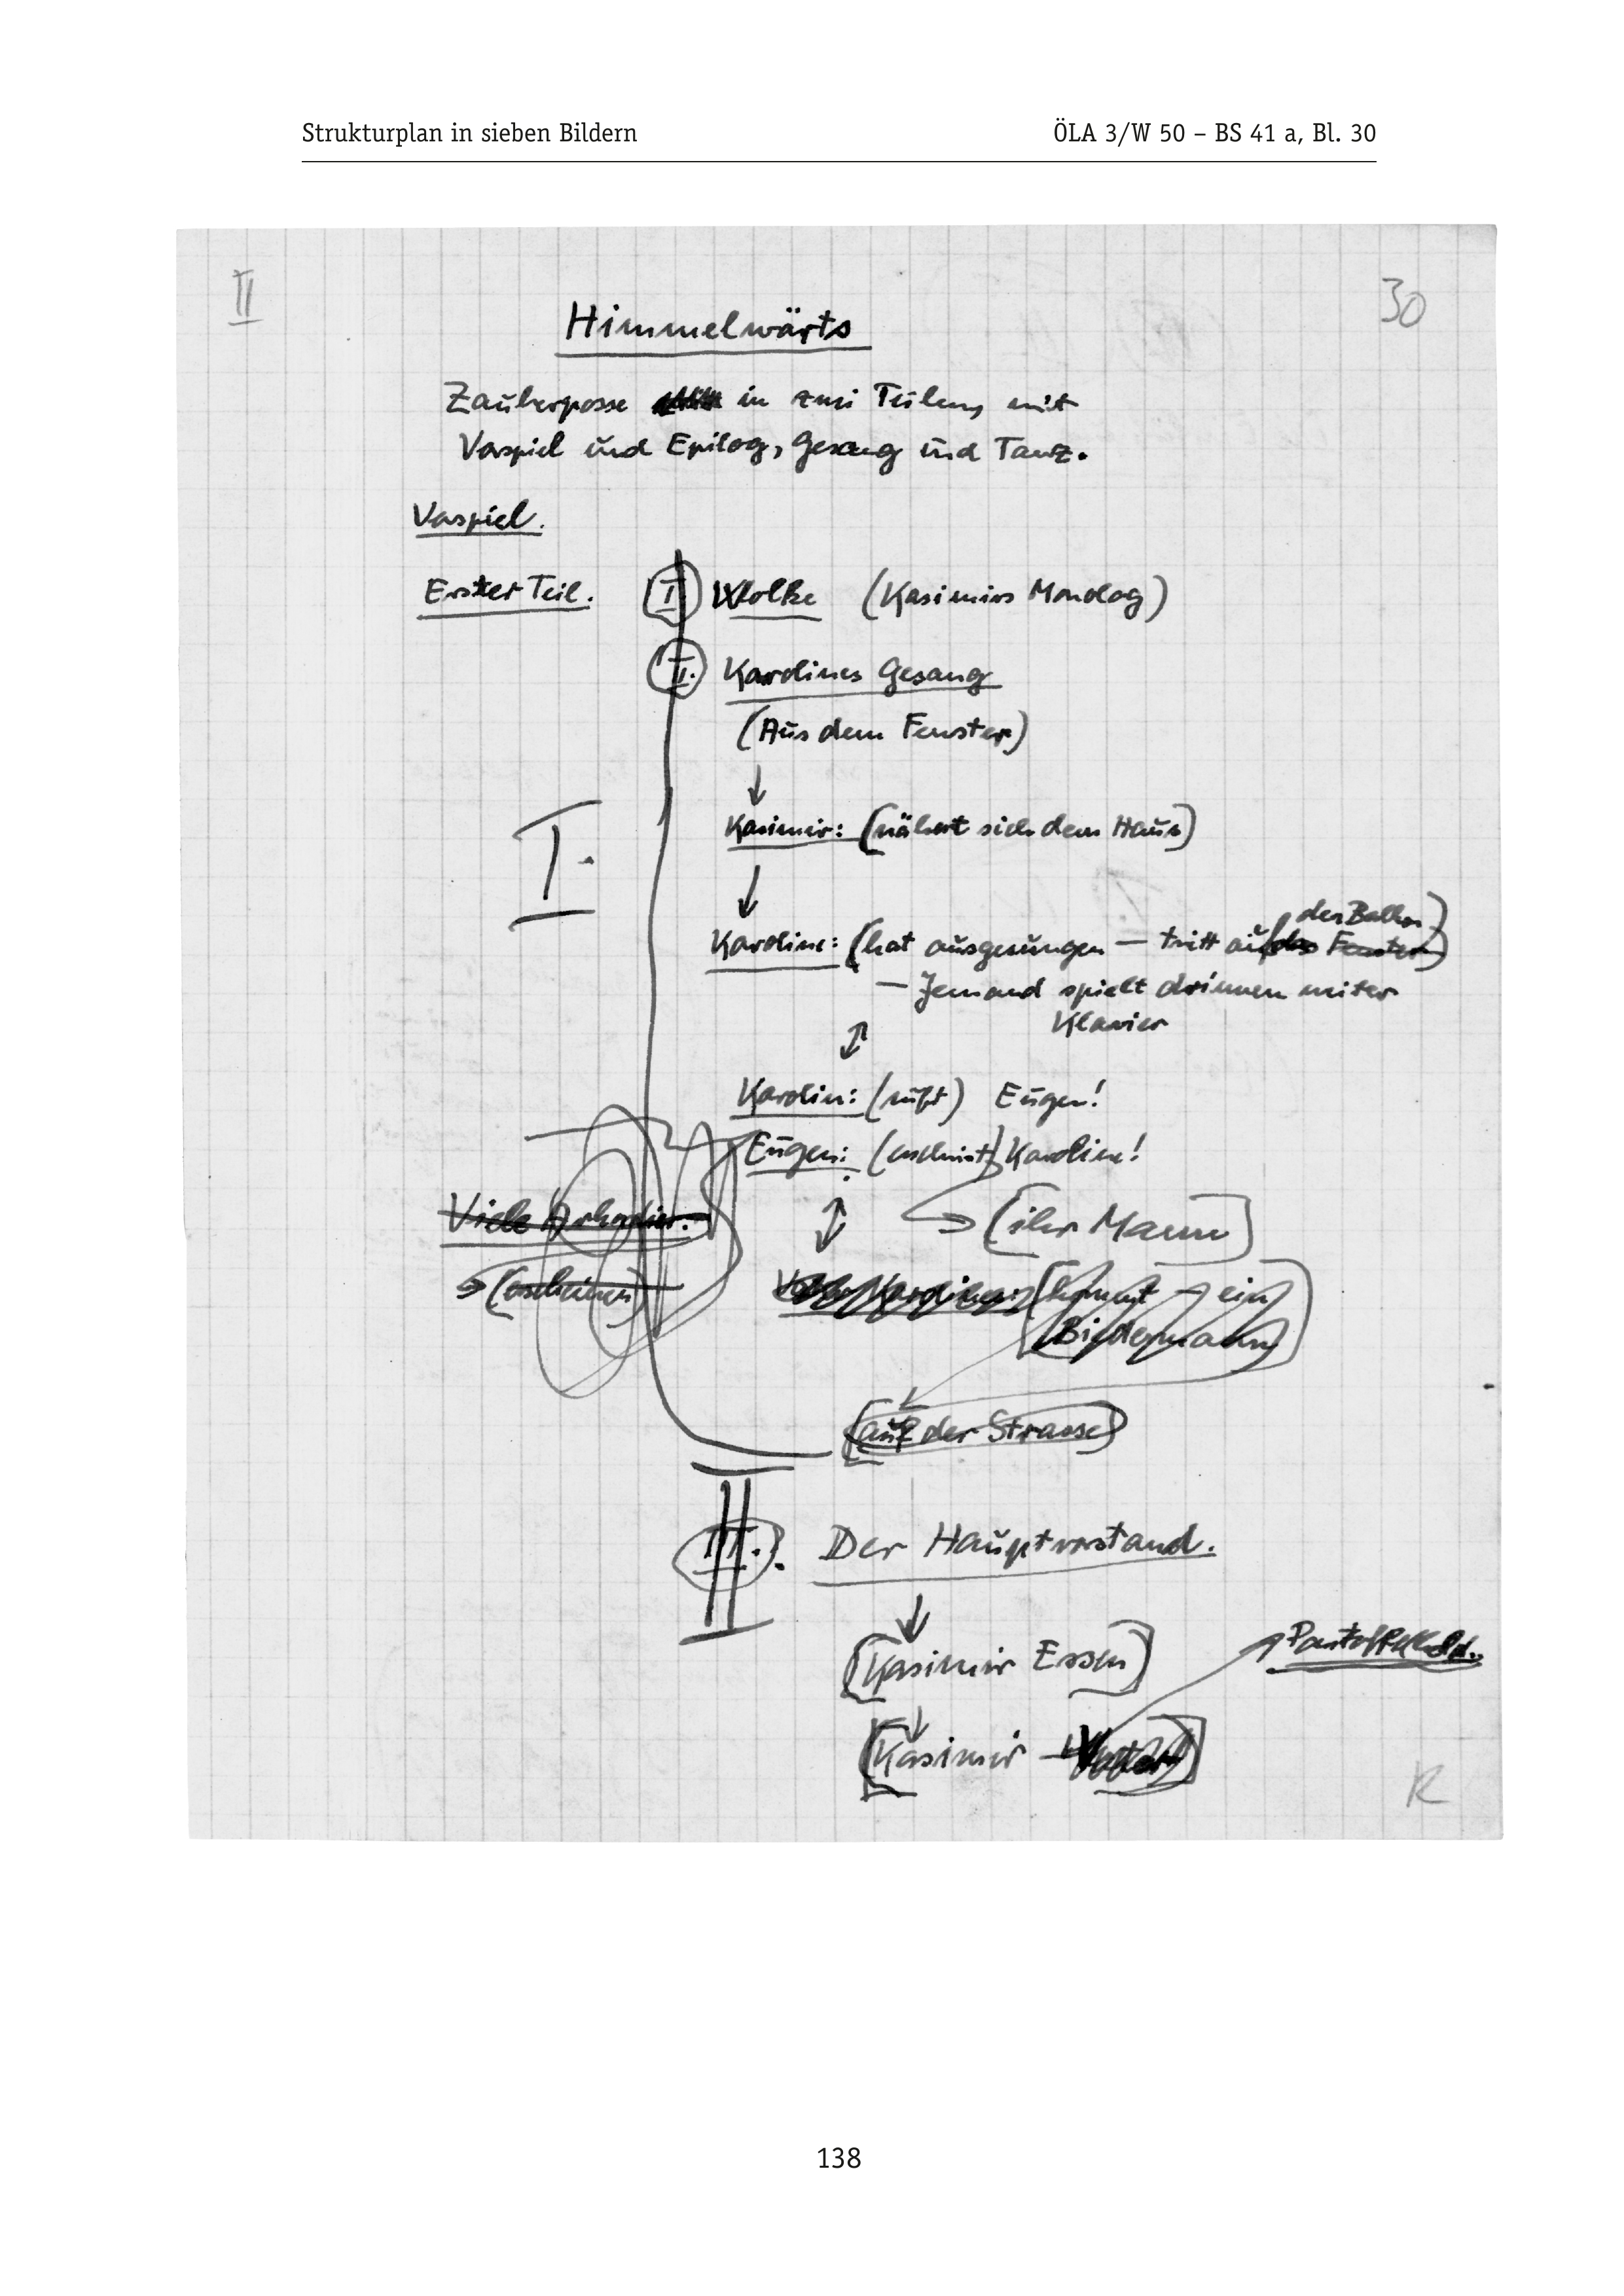 Strukturplan in sieben Bildern
ÖLA 3/W 50 – BS 41 a, Bl. 30
II
30
Himmelwärts
Zauberposse in zwei Teilen, mit
Vorspiel und Epilog, Gesang und Tanz.
Vorspiel.
Erster Teil. I Wolke (Kasimirs Monolog)
II. Karolines Gesang
(Aus dem Fenster)
↓
I.
Kasimir: (nähert sich dem Haus)
↓
den Balkon)
Karoline: (hat ausgesungen — tritt auf das Fenster)
— Jemand spielt drinnen weiter
Klavier
↕
Karolin: (ruft) Eugen!
Eugen: (erscheint) Karoline!
Viele Arkadier.
↕
(ihr Mann)
(erscheinen)
Karoline: (kommt – ein
Biedermann)
(auf der Strasse)
II
III. Der Hauptvorstand.
↓
(Kasimir Essen)
Pantoffelheld.
↓
(Kasimir – Vater)
R
138